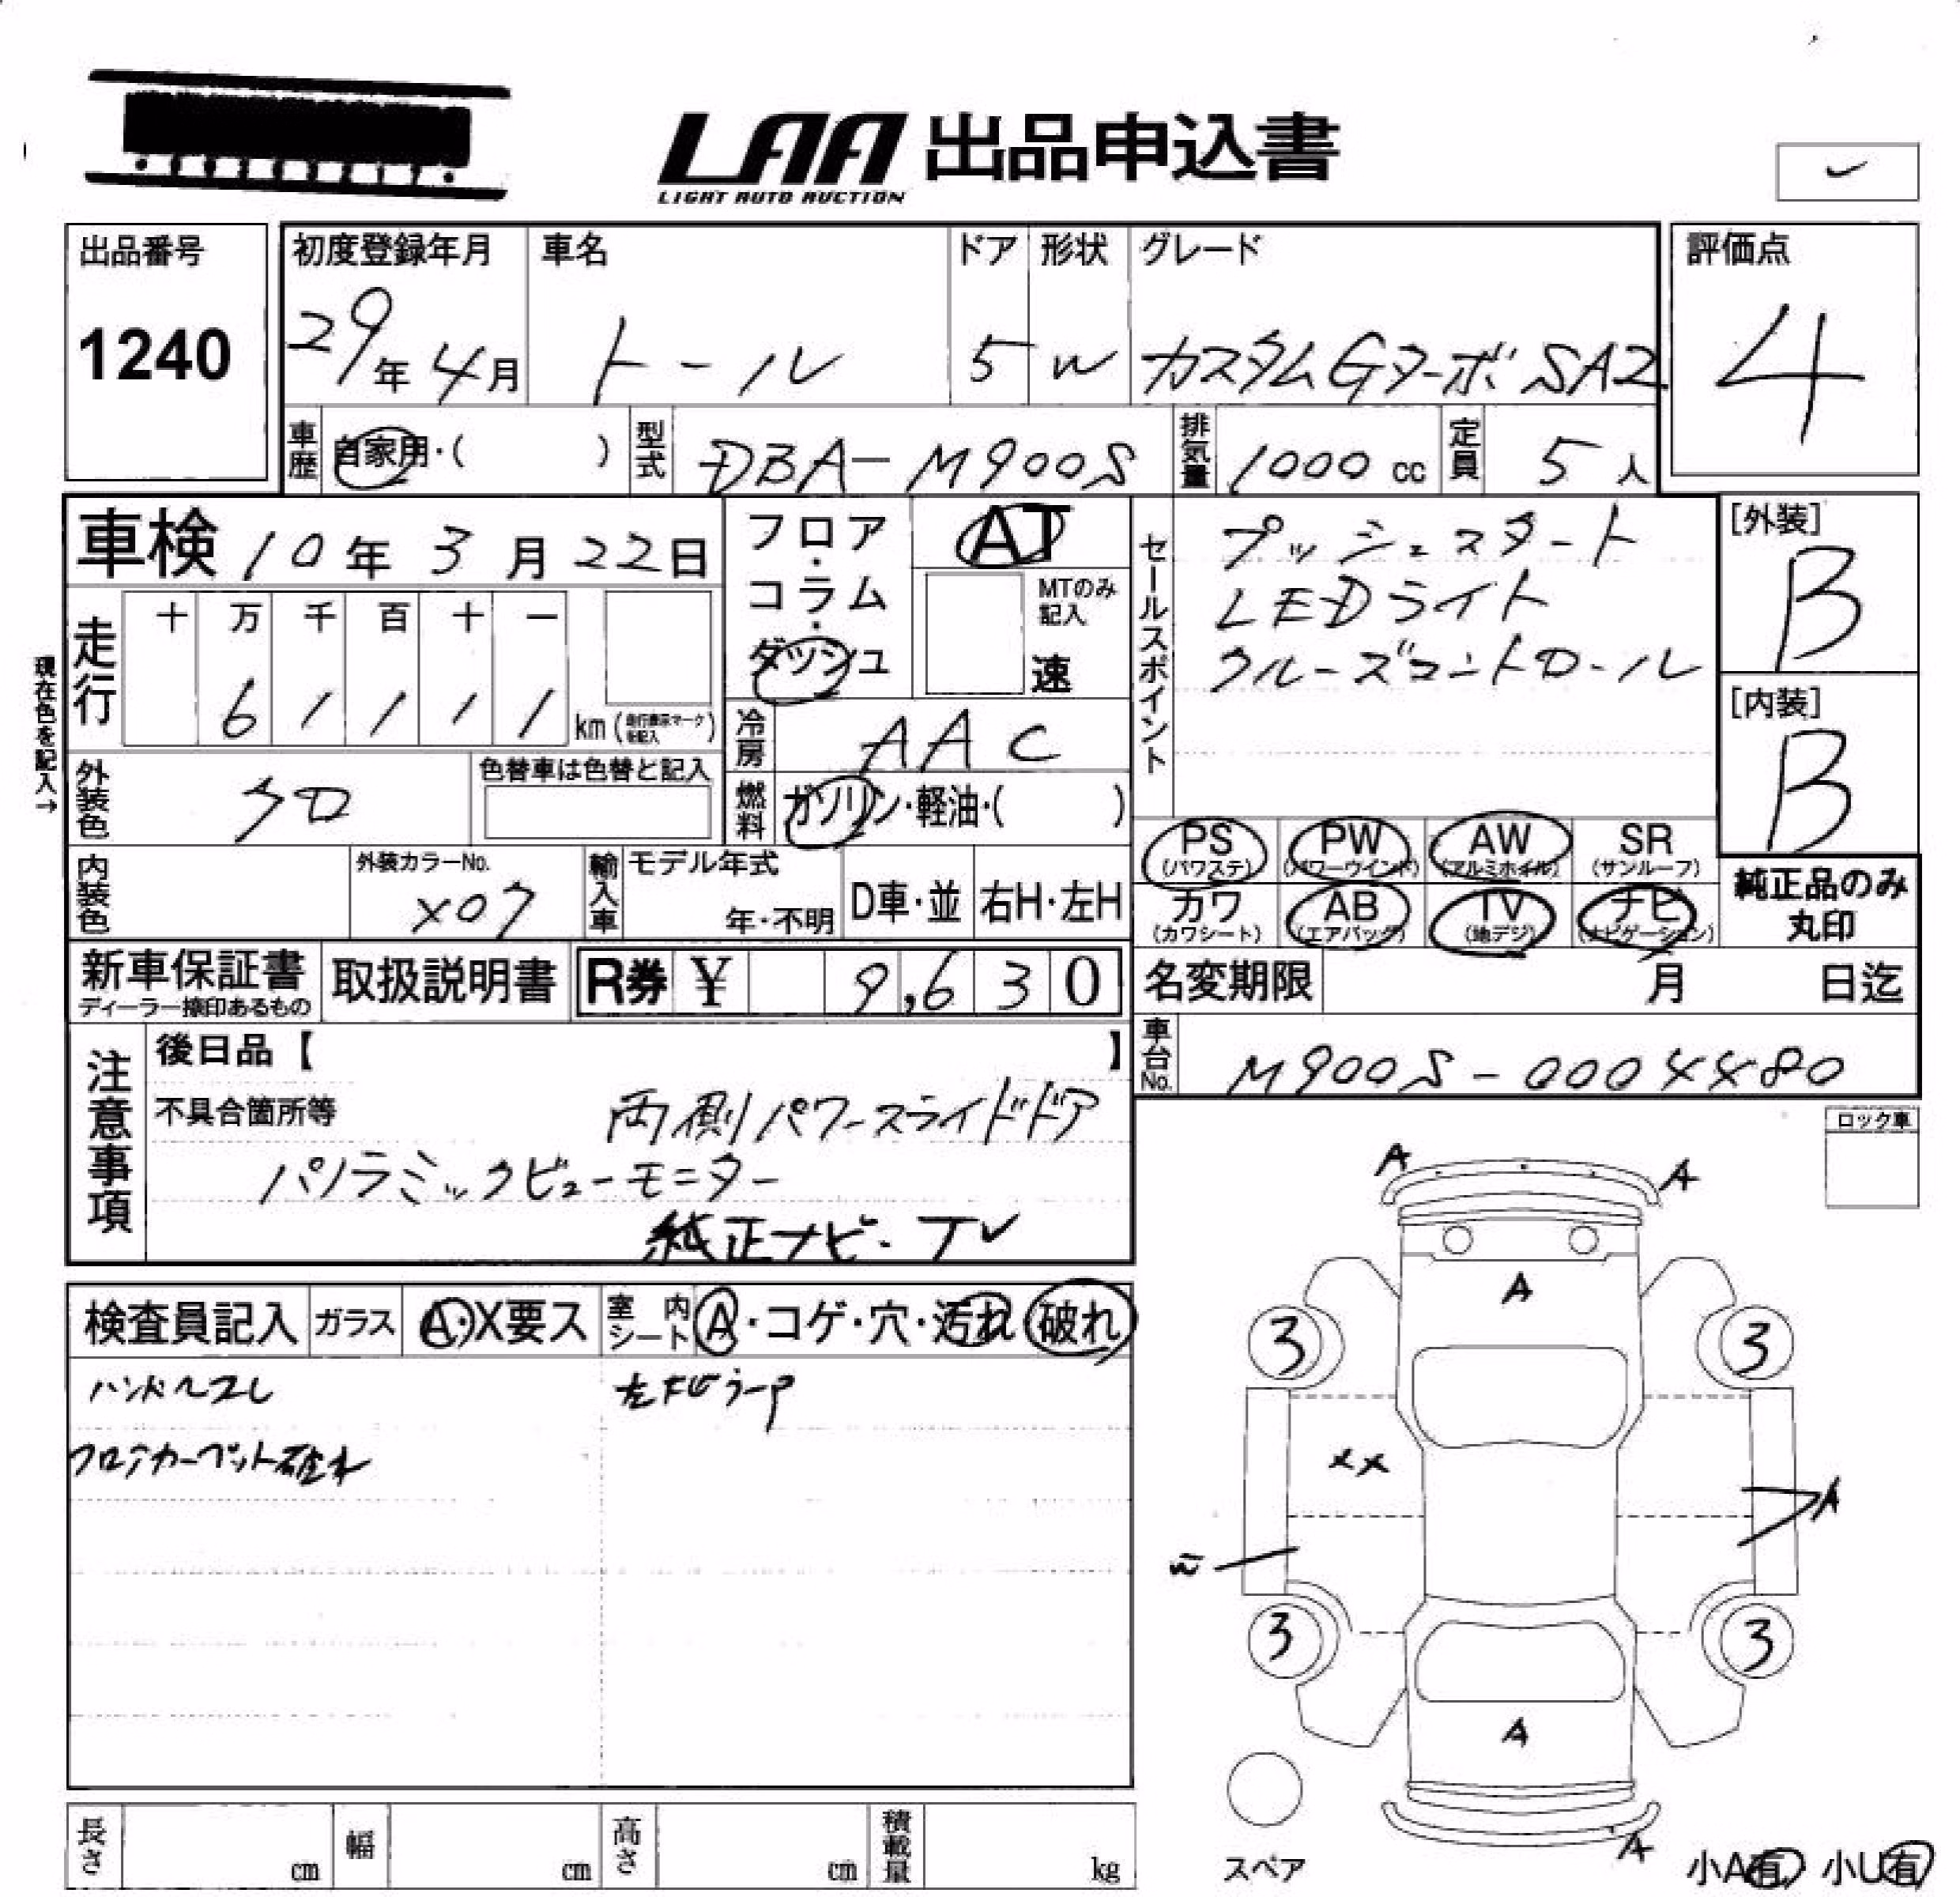 LAA 出品申込書
LIGHT AUTO AUCTION
出品番号
1240
初度登録年月
29年4月
車名
トール
ドア
5
形状
W
グレード
カスタムGターボSA2
評価点
4
車歴
自家用・(　　)
型式
DBA-M900S
排気量
1000 cc
定員
5人
車検 10年 3月 22日
フロア・コラム・ダッシュ
AT
MTのみ記入
速
セールスポイント
プッシュスタート
LEDライト
クルーズコントロール
[外装]
B
[内装]
B
現在色を記入→
走行
十 万 千 百 十 一
6 1 1 1 1
km (走行表示マークを記入)
冷房
AAC
外装色
クロ
色替車は色替と記入
燃料
ガソリン・軽油・(　　)
PS (パワステ)
PW (パワーウインド)
AW (アルミホイル)
SR (サンルーフ)
カワ (カワシート)
AB (エアバック)
TV (地デジ)
ナビ (ナビゲーション)
純正品のみ丸印
内装色
外装カラーNo.
X07
輸入車
モデル年式
年・不明
D車・並
右H・左H
新車保証書
ディーラー捺印あるもの
取扱説明書
R券 ¥ 9,630
名変期限 月 日迄
車台No.
M900S-0004480
注意事項
後日品【　　】
不具合箇所等
両側パワースライドドア
パノラミックビューモニター
純正ナビ・TV
ロック車
検査員記入
ガラス
A・X要ス
室内シート
A・コゲ・穴・汚れ 破れ
ハンドルスレ
フロアカーペット破れ
A
A
A
3
3
XX
A
3
3
A
A
スペア
小A有 小U有
長さ cm
幅 cm
高さ cm
積載量 kg